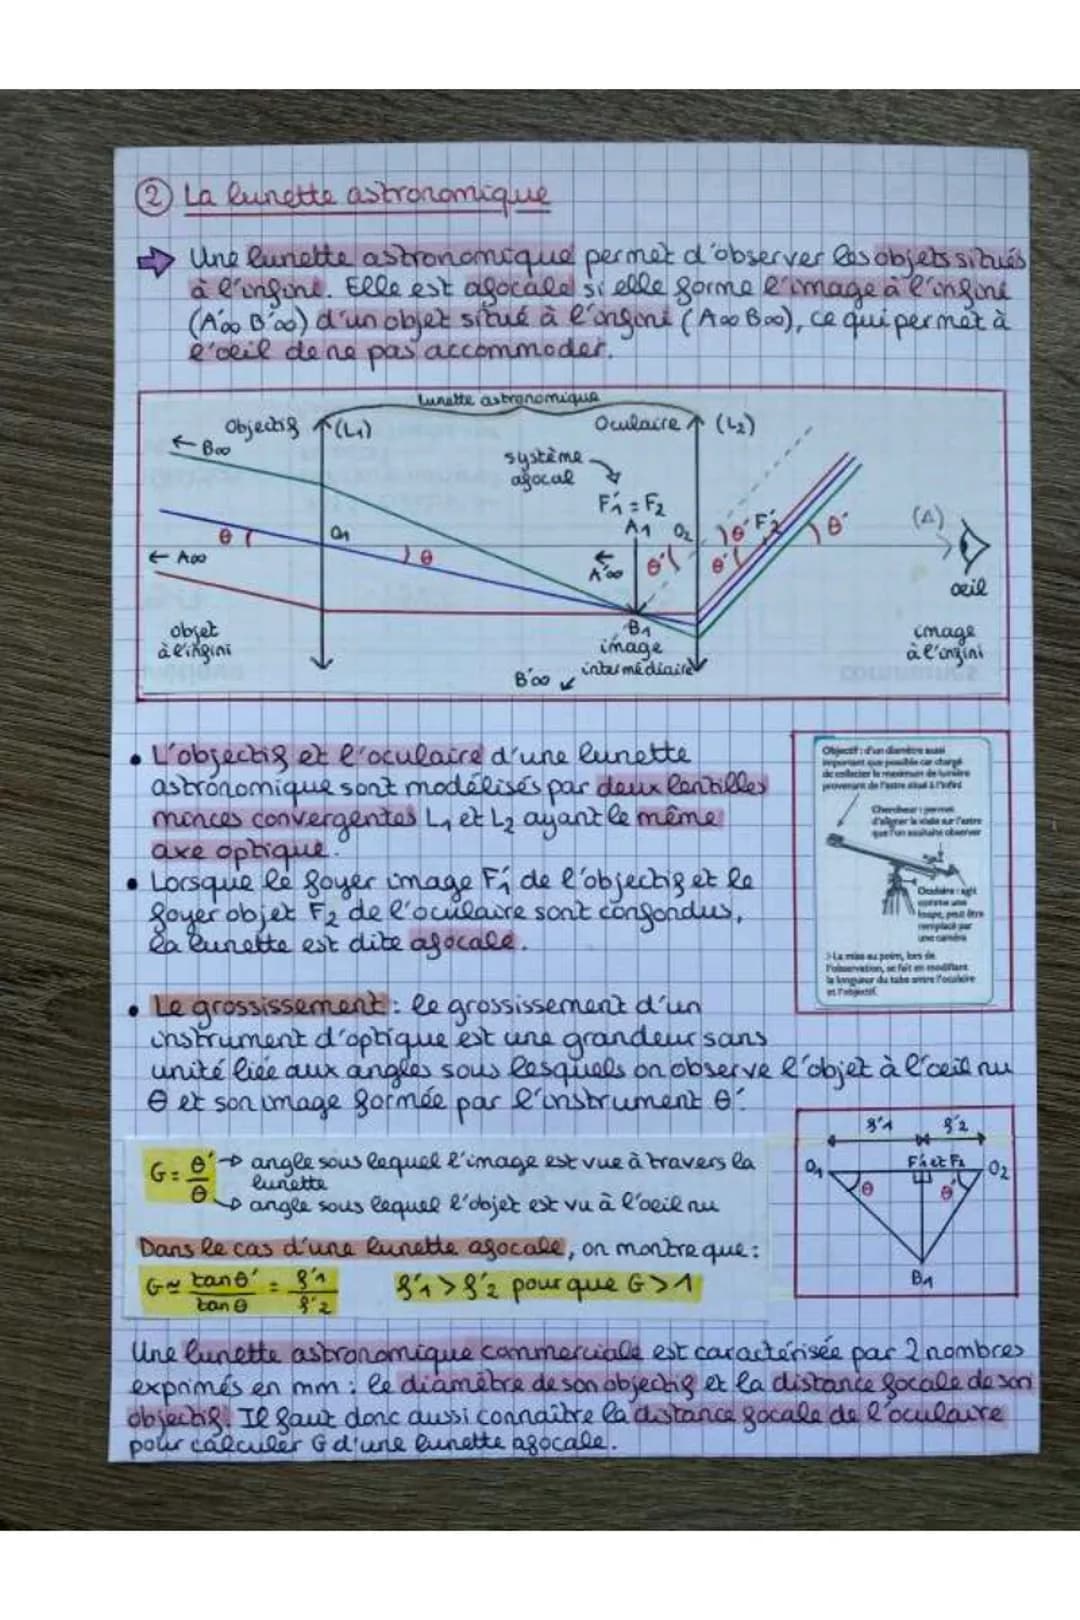 ② La lunette astronomique
⇨ Une lunette astronomique permet d'observer les objets situés
à l'infini. Elle est afocale si elle forme l'image à l'infini
(A'∞ B'∞) d'un objet situé à l'infini (A∞ B∞), ce qui permet à
l'oeil de ne pas accommoder.
lunette astronomique
Objectif (L₁)
Oculaire (L₂)
← B∞
système
afocal
F'₁ = F₂
A₁ O₂ θ' F'₂ θ'
(Δ)
θ O₁ θ
← A∞
←
A'∞
θ' θ'
oeil
objet
à l'infini
B₁
image
intermédiaire
B'∞ ↙
image
à l'infini
• L'objectif et l'oculaire d'une lunette
astronomique sont modélisés par deux lentilles
minces convergentes L₁ et L₂ ayant le même
axe optique.
• Lorsque le foyer image F'₁ de l'objectif et le
foyer objet F₂ de l'oculaire sont confondus,
la lunette est dite afocale.
Objectif : d'un diamètre aussi
important que possible car chargé
de collecter le maximum de lumière
provenant de l'astre situé à l'infini
Chercheur : permet
d'aligner la visée sur l'astre
que l'on souhaite observer
Oculaire : agit
comme une
loupe, peut être
remplacé par
une caméra
> La mise au point, lors de
l'observation, se fait en modifiant
la longueur du tube entre l'oculaire
et l'objectif.
• Le grossissement : le grossissement d'un
instrument d'optique est une grandeur sans
unité liée aux angles sous lesquels on observe l'objet à l'oeil nu
θ et son image formée par l'instrument θ'.
G = θ'/θ → angle sous lequel l'image est vue à travers la
lunette
↳ angle sous lequel l'objet est vu à l'oeil nu
Dans le cas d'une lunette afocale, on montre que :
G ≃ tan θ'/tan θ = f'₁/f'₂ f'₁ > f'₂ pour que G > 1
f'₁ f'₂
O₁ F'₁ et F₂ O₂
θ θ'
B₁
Une lunette astronomique commerciale est caractérisée par 2 nombres
exprimés en mm : le diamètre de son objectif et la distance focale de son
objectif. Il faut donc aussi connaître la distance focale de l'oculaire
pour calculer G d'une lunette afocale.